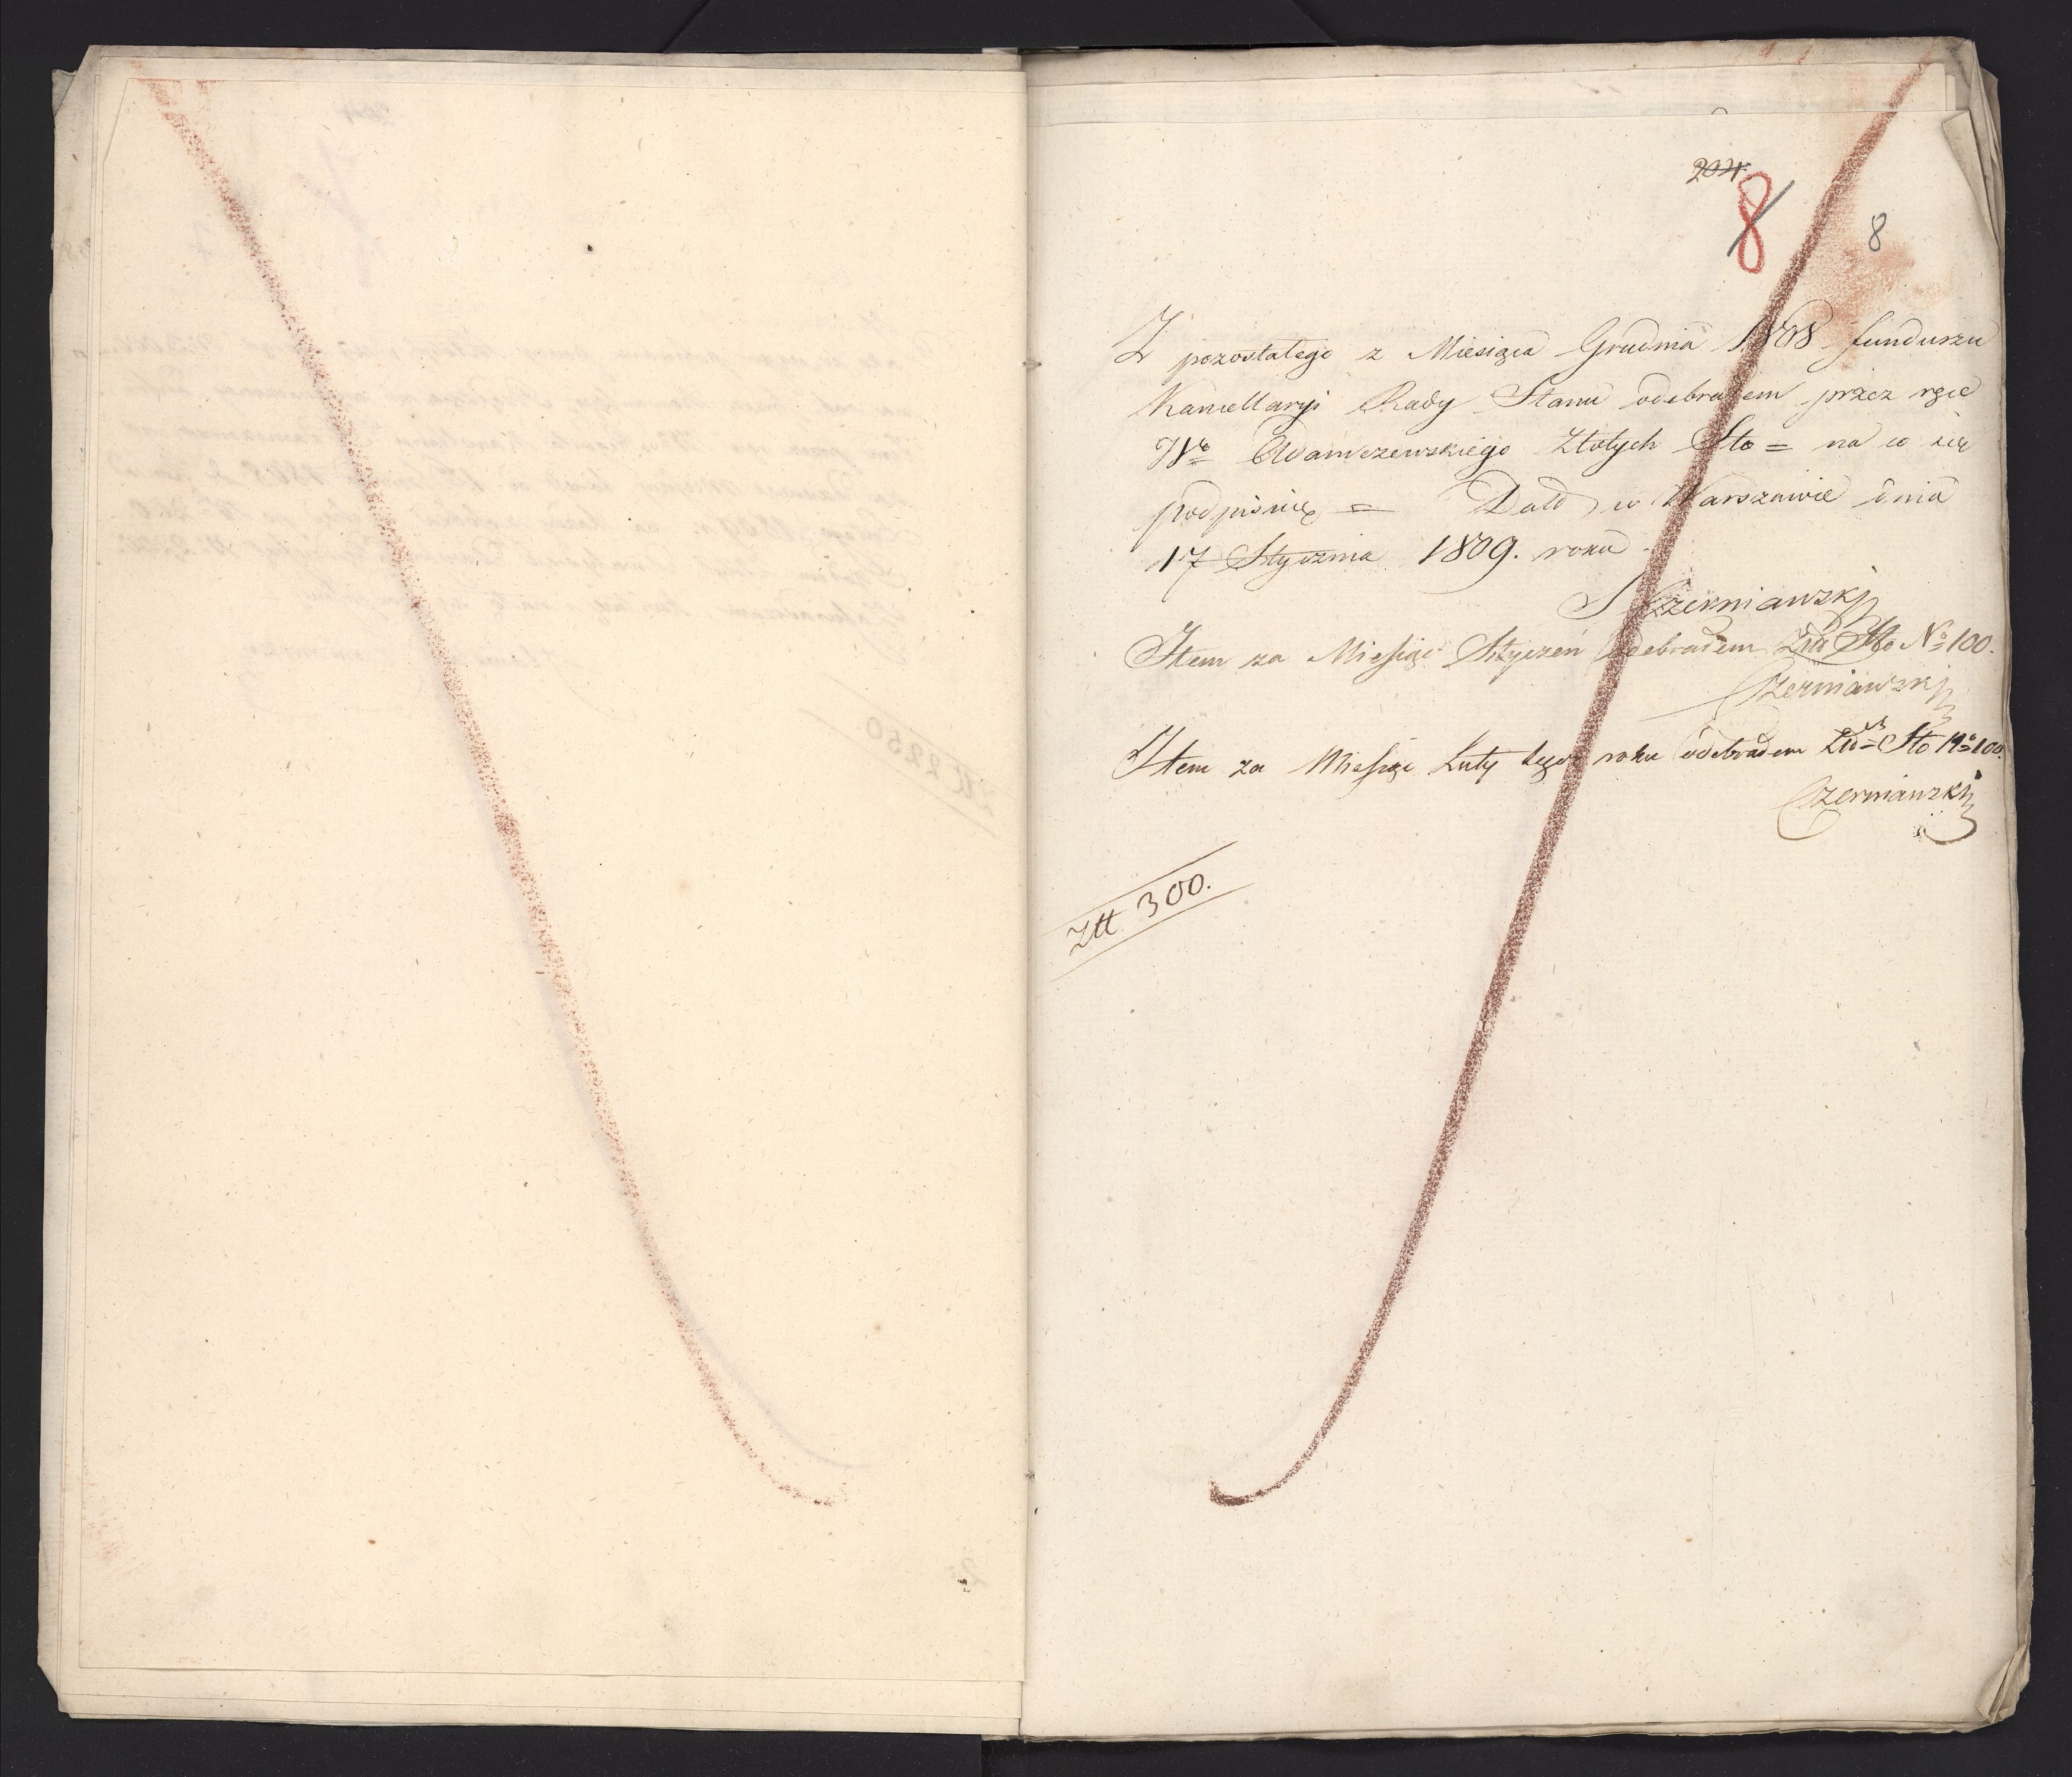 204.
8
8
Z pozostałego z Miesiąca Grudnia 1808 funduszu
Kancellaryi Rady Stanu odebrałem przez ręce
Wo Adamczewskiego Złotych Sto = na co się
podpisuię = Dało w Warszawie dnia
17 Stycznia 1809. roku.
S Czerniawski
Item za Miesiąc Styczeń odebrałem Sto No 100.
Czerniawski
Item za Miesiąc Luty tego roku odebrałem Sto No 100.
Czerniawski
Ztt 300.